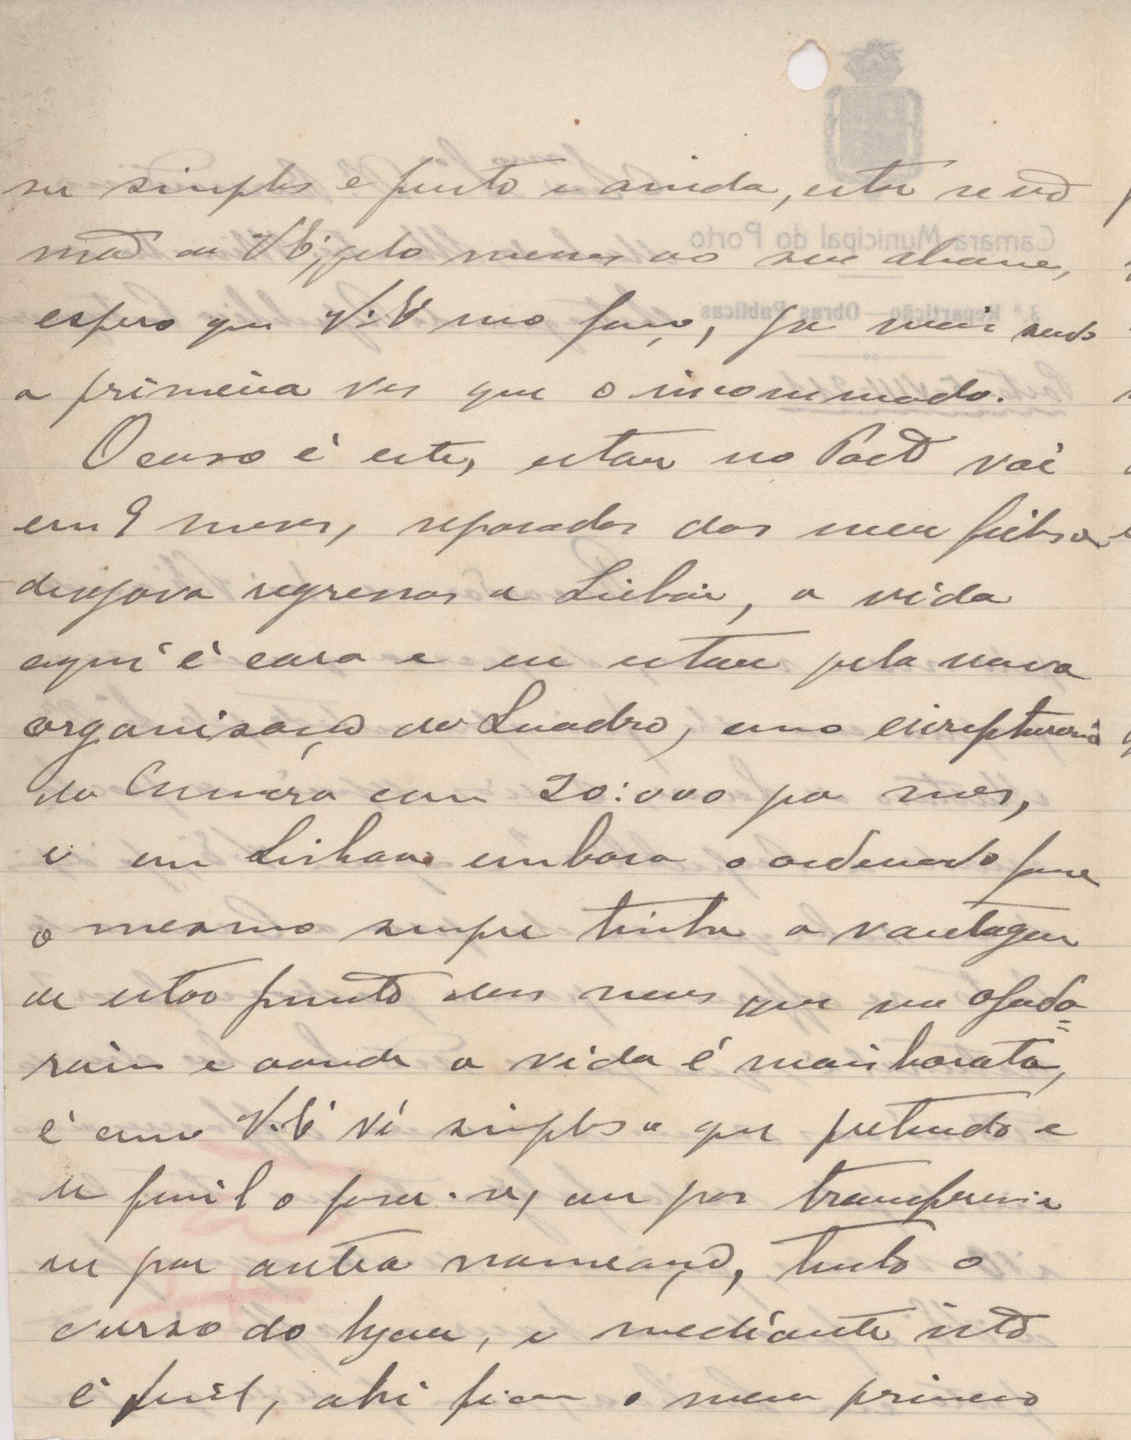 ser simples e justo e ainda, estar se não
mão de V. Eª; pelo menos ao seu alcance,
espero que V. Eª mo faça, já mais sendo
a primeira vez que o incommodo.
O caso é este, estou no Porto vai
em 9 meses, separado dos meus filhos e
desejava regressar a Lisboa, a vida
aqui é cara e eu estou pela nova
organisação do Quadro, como escripturario
da Camára com 20:000 por mes,
e em Lisboa embora o ordenado fosse
o mesmo sempre tinha a vantagem
de estar junto dos meus que me ajuda=
riam e aonde a vida é mais barata,
é como V. Eª vê simples o que pretendo e
é facil o fazer-se, ou por transferencia
ou por outra nomeação, tenho o
curso do lyceu, e mediante isto
é facil, ahi fica o meu primeiro
Camara Municipal do Porto
3.ª Repartição — Obras Publicas